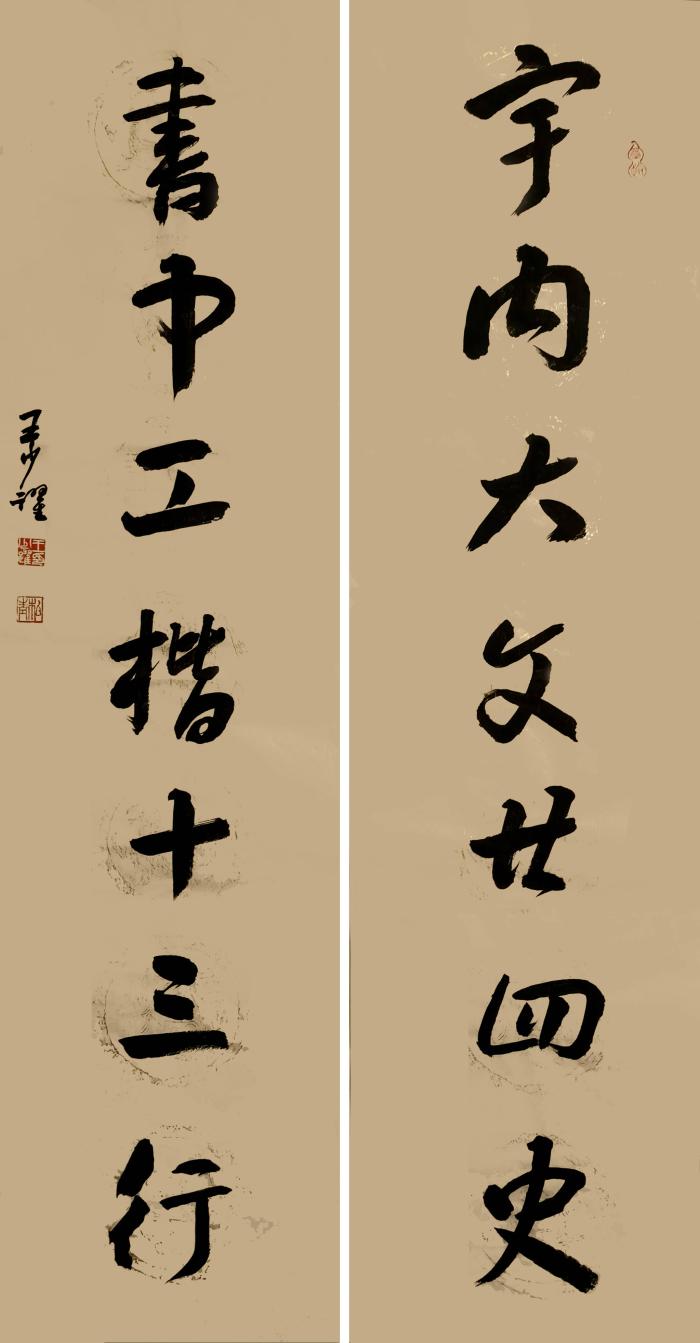 宇内大文廿四史
書中工楷十三行
王少躍